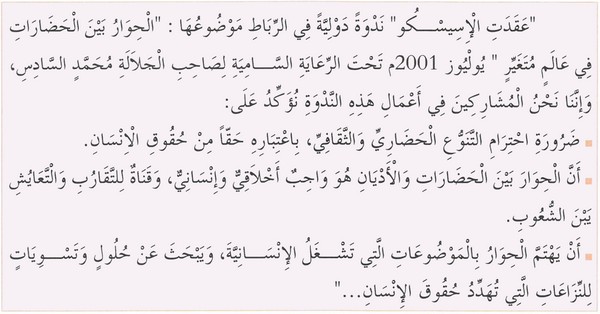 "عَقَدَتِ الْإِسِيسْكُو" نَدْوَةً دَوْلِيَّةً فِي الرِّبَاطِ مَوْضُوعُهَا : "الْحِوَارُ بَيْنَ الْحَضَارَاتِ
فِي عَالَمٍ مُتَغَيِّرٍ " يُولْيُوز 2001م تَحْتَ الرِّعَايَةِ السَّامِيَةِ لِصَاحِبِ الْجَلَالَةِ مُحَمَّدٍ السَّادِسِ،
وَإِنَّنَا نَحْنُ الْمُشَارِكِينَ فِي أَعْمَالِ هَذِهِ النَّدْوَةِ نُؤَكِّدُ عَلَى:
▪ ضَرُورَةِ احْتِرَامِ التَّنَوُّعِ الْحَضَارِيِّ وَالثَّقَافِيِّ، بِاعْتِبَارِهِ حَقّاً مِنْ حُقُوقِ الْاِنْسَانِ.
▪ أَنَّ الْحِوَارَ بَيْنَ الْحَضَارَاتِ وَالْأَدْيَانِ هُوَ وَاجِبٌ أَخْلَاقِيٌّ وَإِنْسَانِيٌّ، وَقَنَاةٌ لِلتَّقَارُبِ وَالتَّعَايُشِ
يَبْنَ الشُّعُوبِ.
▪ أَنْ يَهْتَمَّ الْحِوَارُ بِالْمَوْضُوعَاتِ الَّتِي تَشْغَلُ الْإِنْسَانِيَّةَ، وَيَبْحَثَ عَنْ حُلُولٍ وَتَسْوِيَاتٍ
لِلنِّزَاعَاتِ الَّتِي تُهَدِّدُ حُقُوقَ الْإِنْسَانِ..."